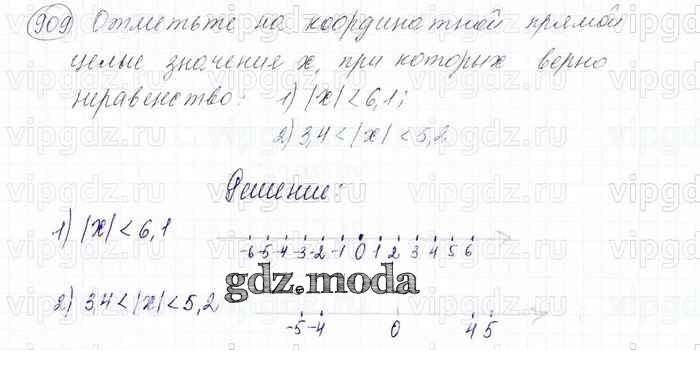 909 Отметьте на координатной прямой
целые значения x, при которых верно
неравенство: 1) |x| < 6,1;
2) 3,4 < |x| < 5,2.
Решение:
1) |x| < 6,1
-6 -5 -4 -3 -2 -1 0 1 2 3 4 5 6
gdz.moda
2) 3,4 < |x| < 5,2
-5 -4 0 4 5
vipgdz.ru